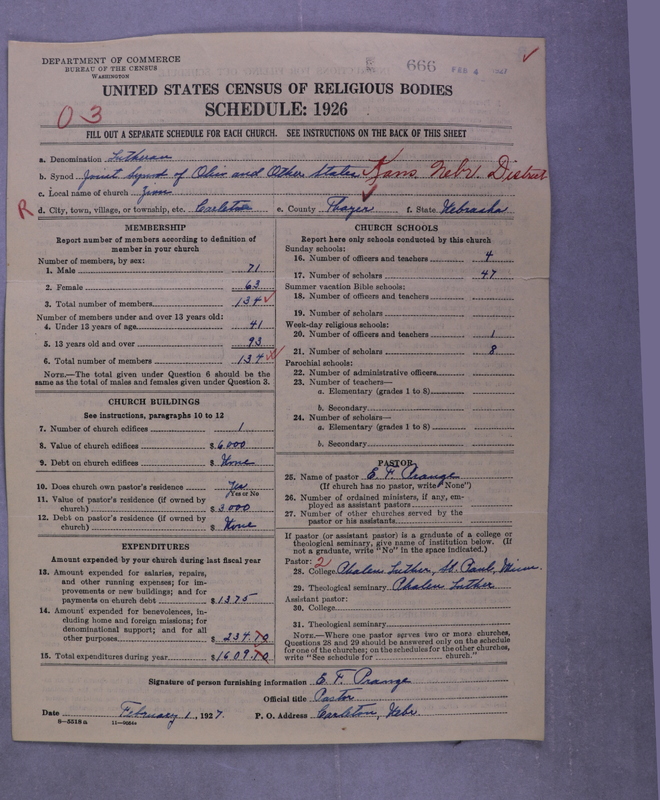 DEPARTMENT OF COMMERCE
BUREAU OF THE CENSUS
WASHINGTON
666 FEB 4
UNITED STATES CENSUS OF RELIGIOUS BODIES
SCHEDULE: 1926
03
FILL OUT A SEPARATE SCHEDULE FOR EACH CHURCH. SEE INSTRUCTIONS ON THE BACK OF THIS SHEET
a. Denomination Lutheran
b. Synod Joint Synod of Ohio and Other States Kans. Nebr. District
c. Local name of church Zion
R d. City, town, village, or township, etc. Carleton e. County Thayer f. State Nebraska
MEMBERSHIP
Report number of members according to definition of
member in your church
Number of members, by sex:
1. Male 71
2. Female 63
3. Total number of members 134
Number of members under and over 13 years old:
4. Under 13 years of age 41
5. 13 years old and over 93
6. Total number of members 134
NOTE.—The total given under Question 6 should be the
same as the total of males and females given under Question 3.
CHURCH BUILDINGS
See instructions, paragraphs 10 to 12
7. Number of church edifices 1
8. Value of church edifices $6000
9. Debt on church edifices $None
10. Does church own pastor's residence? Yes
Yes or No
11. Value of pastor's residence (if owned by
church) $3000
12. Debt on pastor's residence (if owned by
church) $None
EXPENDITURES
Amount expended by your church during last fiscal year
13. Amount expended for salaries, repairs,
and other running expenses; for im-
provements or new buildings; and for
payments on church debt $1375
14. Amount expended for benevolences, in-
cluding home and foreign missions; for
denominational support; and for all
other purposes $234.70
15. Total expenditures during year $1609.70
CHURCH SCHOOLS
Report here only schools conducted by this church
Sunday schools:
16. Number of officers and teachers 4
17. Number of scholars 47
Summer vacation Bible schools:
18. Number of officers and teachers
19. Number of scholars
Week-day religious schools:
20. Number of officers and teachers 1
21. Number of scholars 8
Parochial schools:
22. Number of administrative officers
23. Number of teachers—
a. Elementary (grades 1 to 8)
b. Secondary
24. Number of scholars—
a. Elementary (grades 1 to 8)
b. Secondary
PASTOR
25. Name of pastor E. F. Prange
(If church has no pastor, write "None")
26. Number of ordained ministers, if any, em-
ployed as assistant pastors
27. Number of other churches served by the
pastor or his assistants
If pastor (or assistant pastor) is a graduate of a college or
theological seminary, give name of institution below. (If
not a graduate, write "No" in the space indicated.)
Pastor: 2
28. College Phalen Luther, St. Paul, Minn.
29. Theological seminary Phalen Luther
Assistant pastor:
30. College
31. Theological seminary
NOTE.—Where one pastor serves two or more churches,
Questions 28 and 29 should be answered only on the schedule
for one of the churches; on the schedules for the other churches,
write "See schedule for church."
Signature of person furnishing information E. F. Prange
Official title Pastor
Date February 1, 1927. P. O. Address Carleton, Nebr.
8—5518a